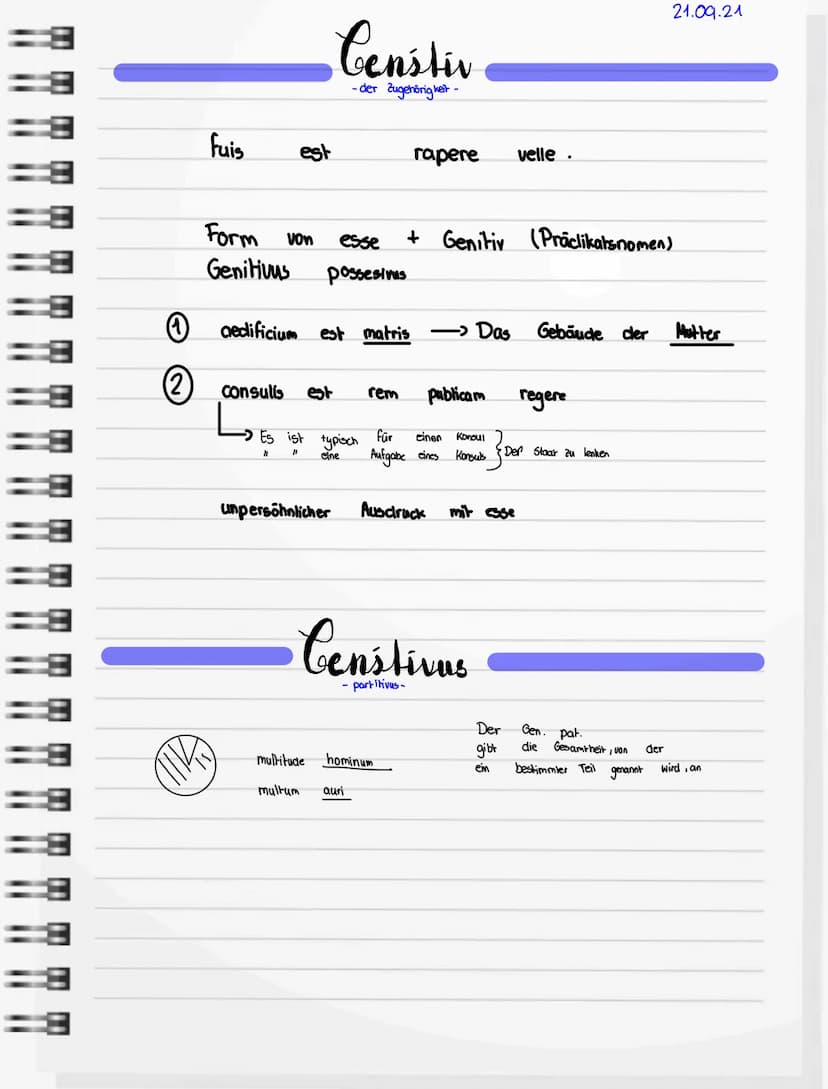 21.09.21
Genitiv
- der Zugehörigkeit -
fuis est rapere velle .
Form von esse + Genitiv (Prädikatsnomen)
Genitivus possesivus
1 aedificium est matris → Das Gebäude der Mutter
2 consulis est rem publicam regere
Es ist typisch für einen Konsul
" " eine Aufgabe eines Konsuls } Den Staat zu lenken
unpersöhnlicher Ausdruck mit esse
Genitivus
- partitivus -
Der Gen. pat.
gibt die Gesamtheit, von der
ein bestimmter Teil genannt wird, an
multitude hominum
multum auri